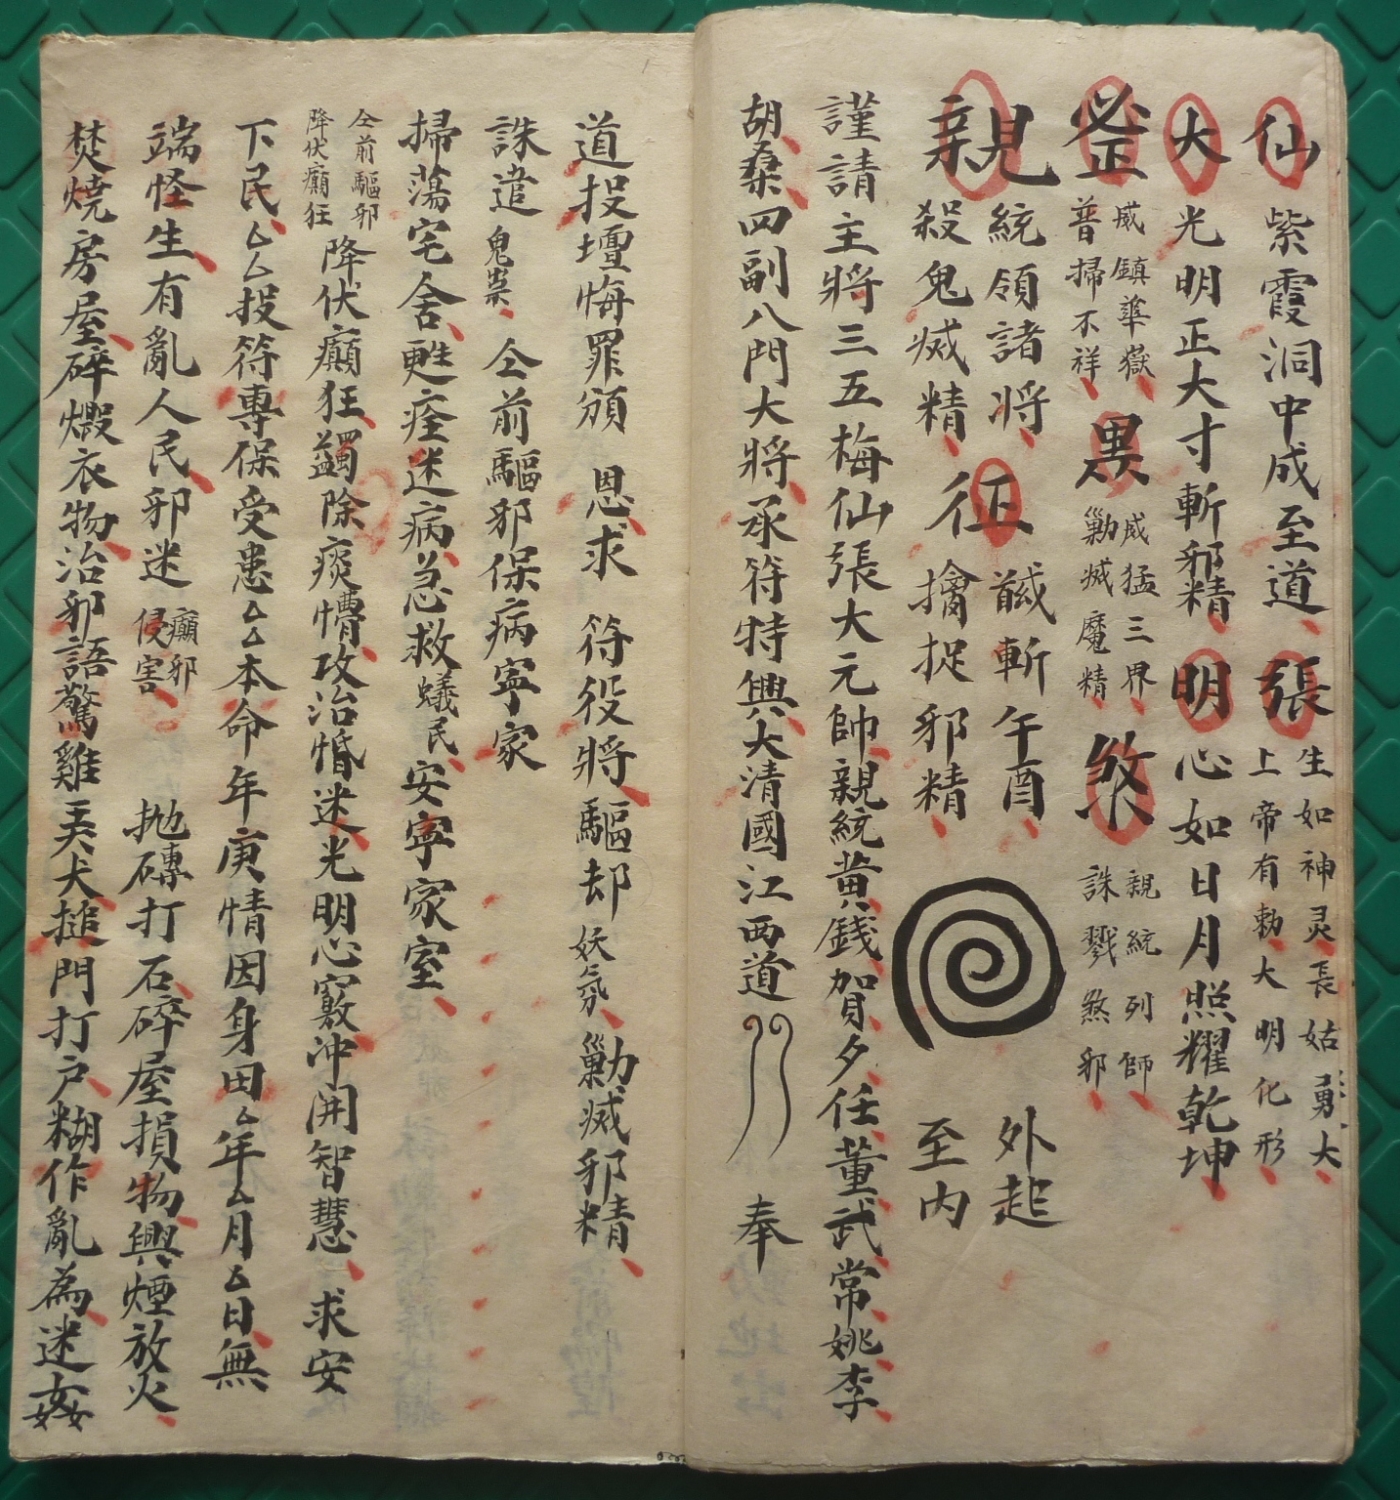 仙 紫霞洞中成至道 張 生如神灵長姑勇大 上帝有勅大明化形
大光明正大寸斬邪精 明心如日月照耀乾坤
威鎮華嶽 普掃不祥 威猛三界 勦滅魔精 煞 親統列師 誅戮煞邪
親 統領諸將 殺鬼滅精 征 馘斬午酉 擒捉邪精 外起 至内
謹請主將三五梅仙張大元帥親統黄錢賀夕任董武常姚李
胡桑四副八門大將承符特興大清國江西道 奉
道投壇悔罪頒 恩求 符役將驅却妖氛勦滅邪精
誅遣鬼祟 仝前驅邪保病寧家
掃蕩宅舍甦痊迷病急救蟻民安寧家室
仝前驅邪 降伏癲狂 降伏癲狂蠲除痰懵攻治惛迷光明心竅冲開智慧求安
下民厶厶投符專保受患厶厶本命年庚情因身田厶年厶月厶日無
端怪生有亂人民邪迷 癲邪 侵害 抛磚打石碎屋損物興煙放火
焚燒房屋碎燬衣物治邪語驚雞弄犬搥門打户糊作亂為迷姦